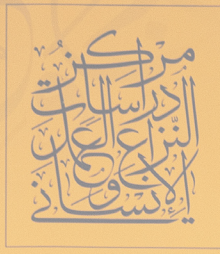 مركز
دراسات
النزاع
والعمل
الإنساني